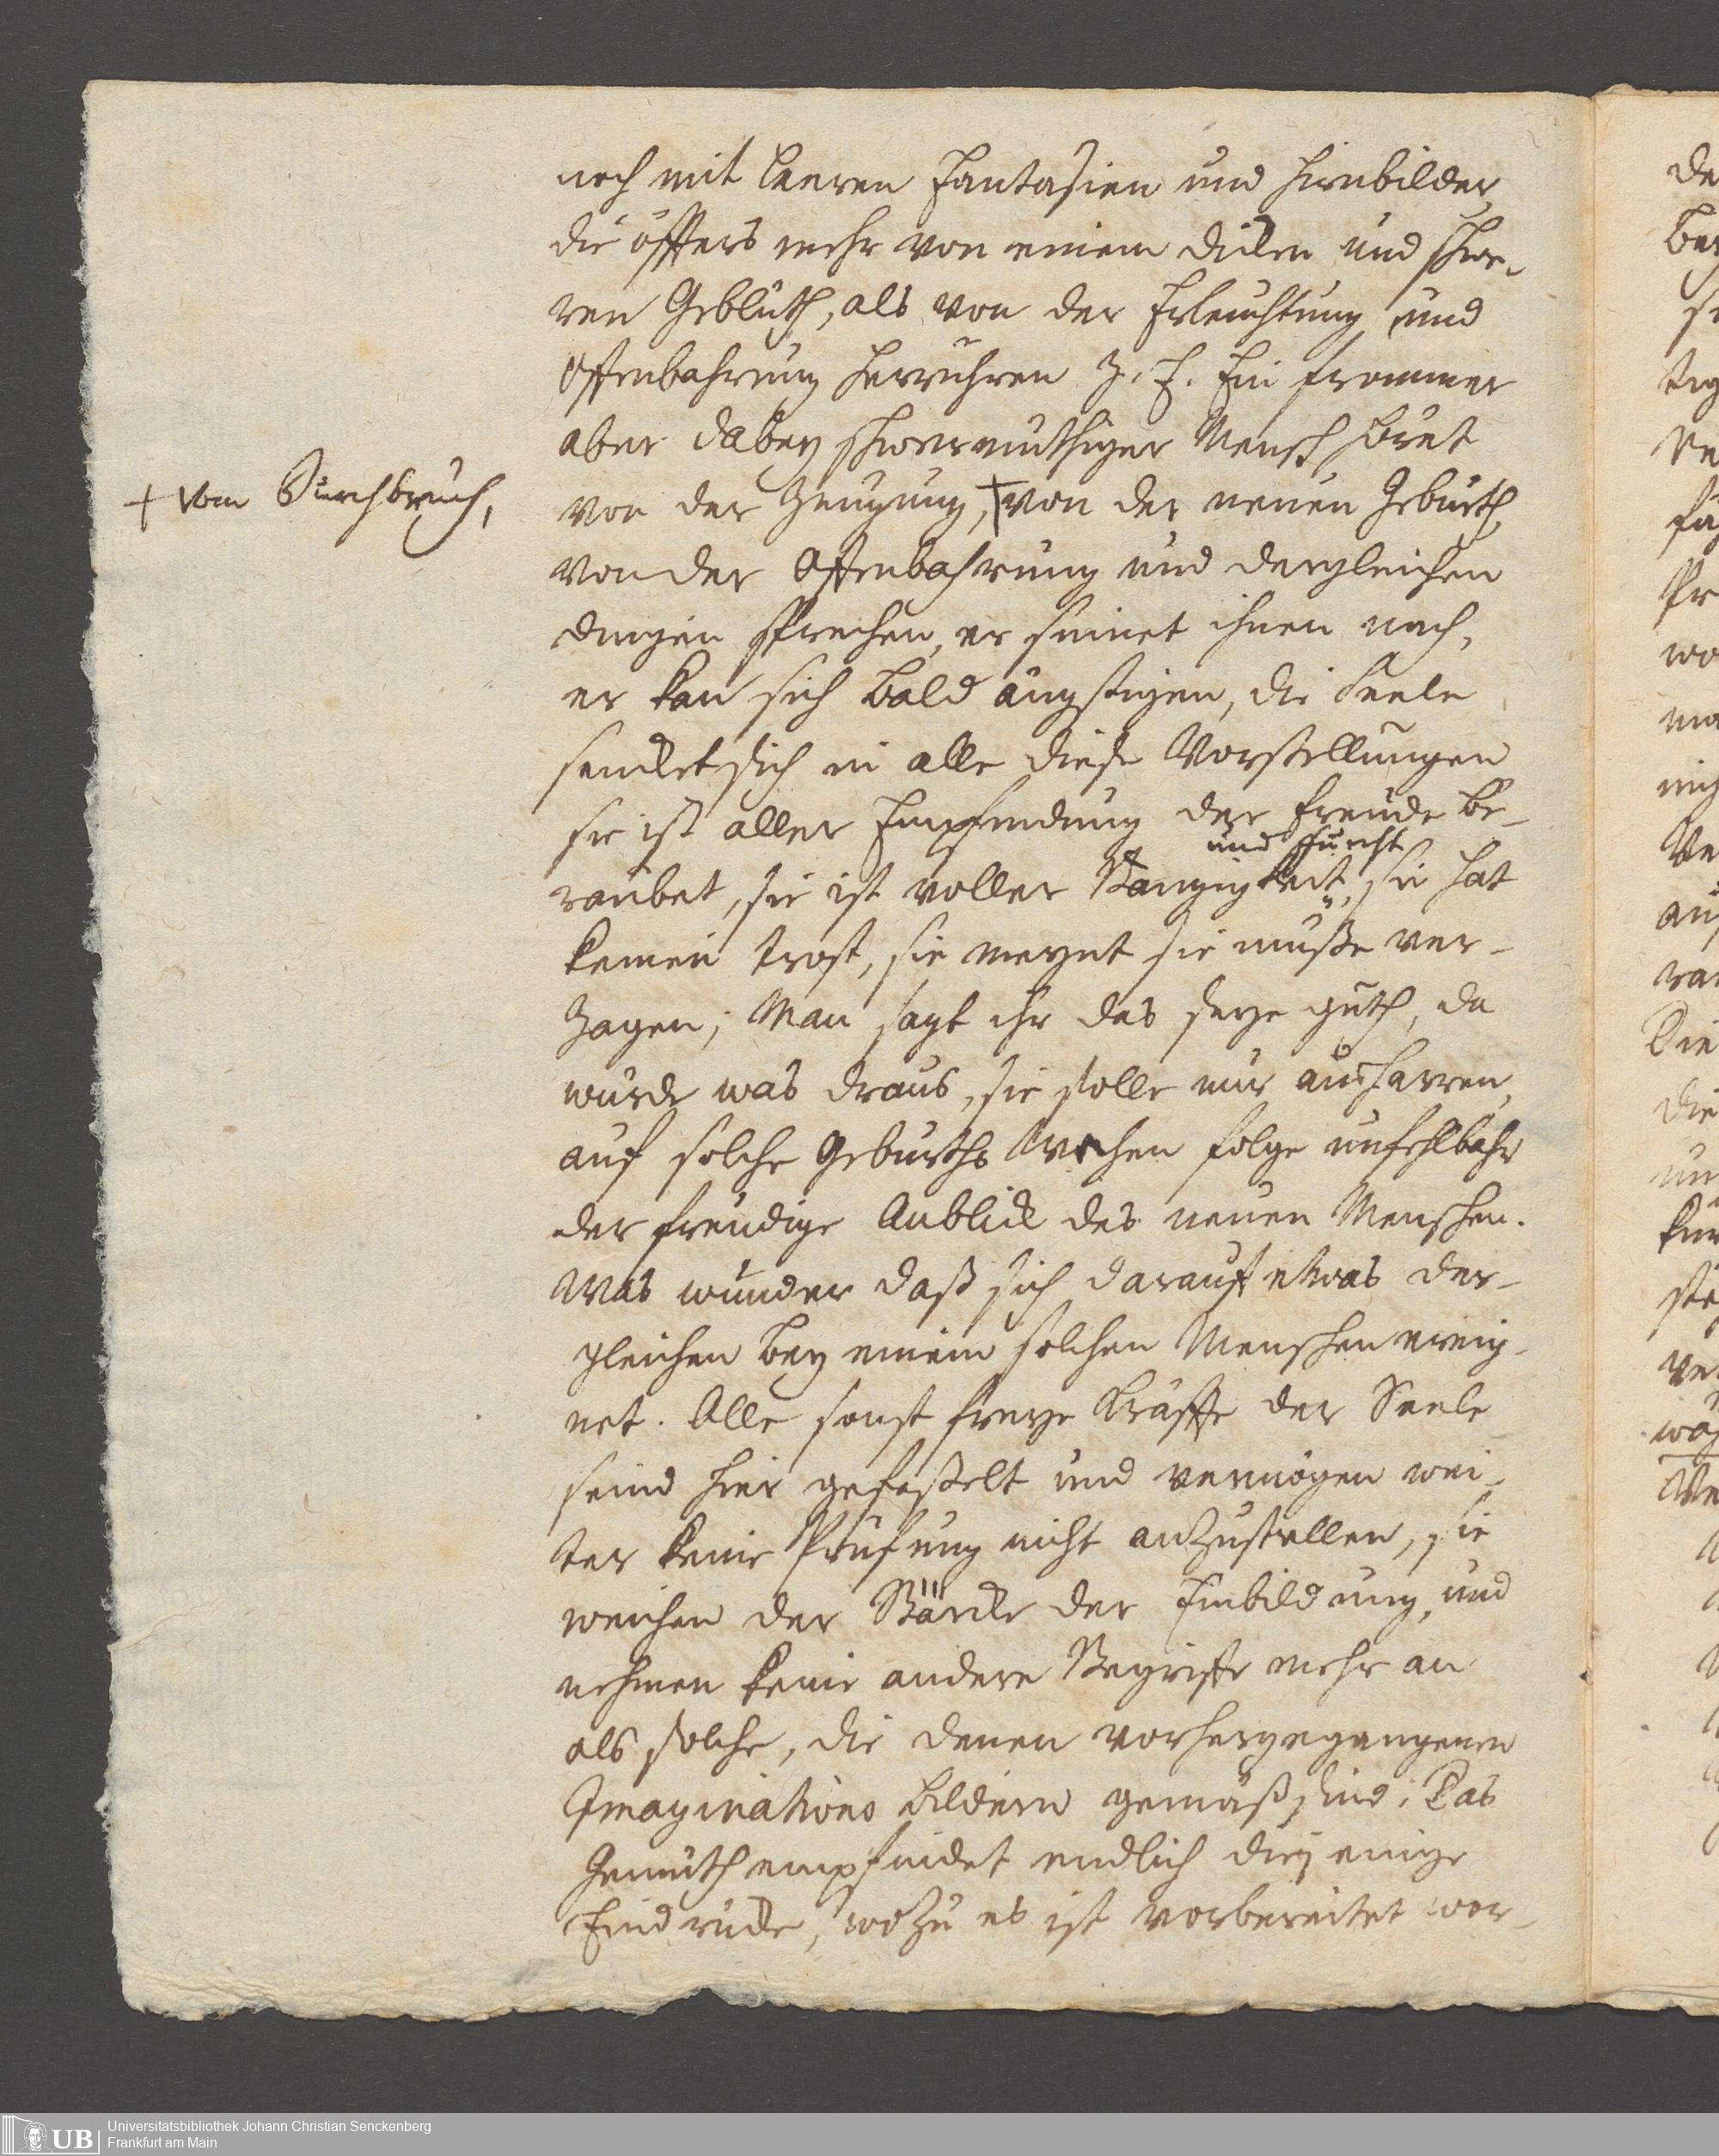 noch mit leeren Fantasien und Hirnbilder,
die öffters mehr von einem dicken und schwe-
ren Geblüth, als von der Erleuchtung und
Offenbahrung herrühren Z. E. Ein frommer
aber dabey schwermüthiger Mensch höret
+ vom Durchbruch,
von der Zeugung, + von der neuen Geburth,
von der Offenbahrung und dergleichen
dingen sprechen, er sinnet ihnen nach,
er kan sich bald ängstigen, die Seele
sencket sich in alle diese Vorstellungen
sie ist aller Empfindung der freude be-
und Furcht
raubet, sie ist voller Bangigkeit, sie hat
keinen Trost, sie meynt sie müße ver-
zagen; Man sagt ihr das seye guth, da
würde was draus, sie solle nur ausharren,
auf solche Geburths Wehen folge unfehlbahr
der freudige Anblick des neuen Menschen.
Was wunder daß sich darauf etwas der-
gleichen bey einem solchen Menschen ereig-
net. Alle sonst freye Kräffte der Seele
seind hier gefeßelt und vermögen wei-
ter keine Prüfung nicht anzustellen, sie
weichen der Stärcke der Einbildung, und
nehmen keine andere Begriffe mehr an
als solche, die denen vorhergegangenen
Imaginations bildern gemäß sind. Das
Gemüth empfindet endlich diejenige
Eindrücke, wozu es ist vorbereitet wor-
Universitätsbibliothek Johann Christian Senckenberg
Frankfurt am Main
UB